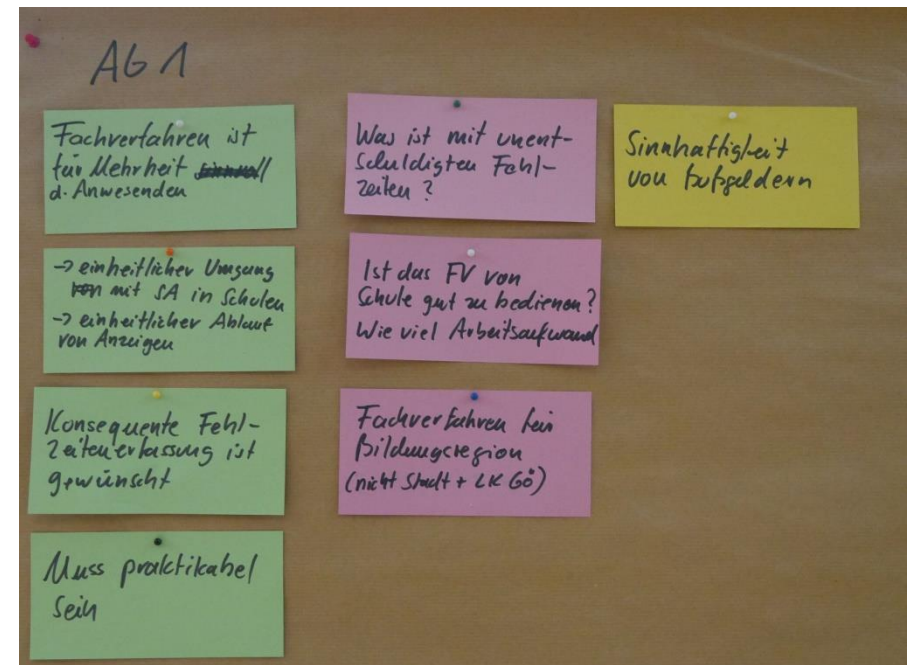 AG 1
Fachverfahren ist
für Mehrheit
d. Anwesenden
→ einheitlicher Umgang
mit SA in Schulen
→ einheitlicher Ablauf
von Anzeigen
Konsequente Fehl-
zeitenerfassung ist
gewünscht
Muss praktikabel
sein
Was ist mit unent-
schuldigten Fehl-
zeiten?
Ist das FV von
Schule gut zu bedienen?
Wie viel Arbeitsaufwand
Fachverfahren für
Bildungsregion
(nicht Stadt + LK Gö)
Sinnhaftigkeit
von Bußgeldern